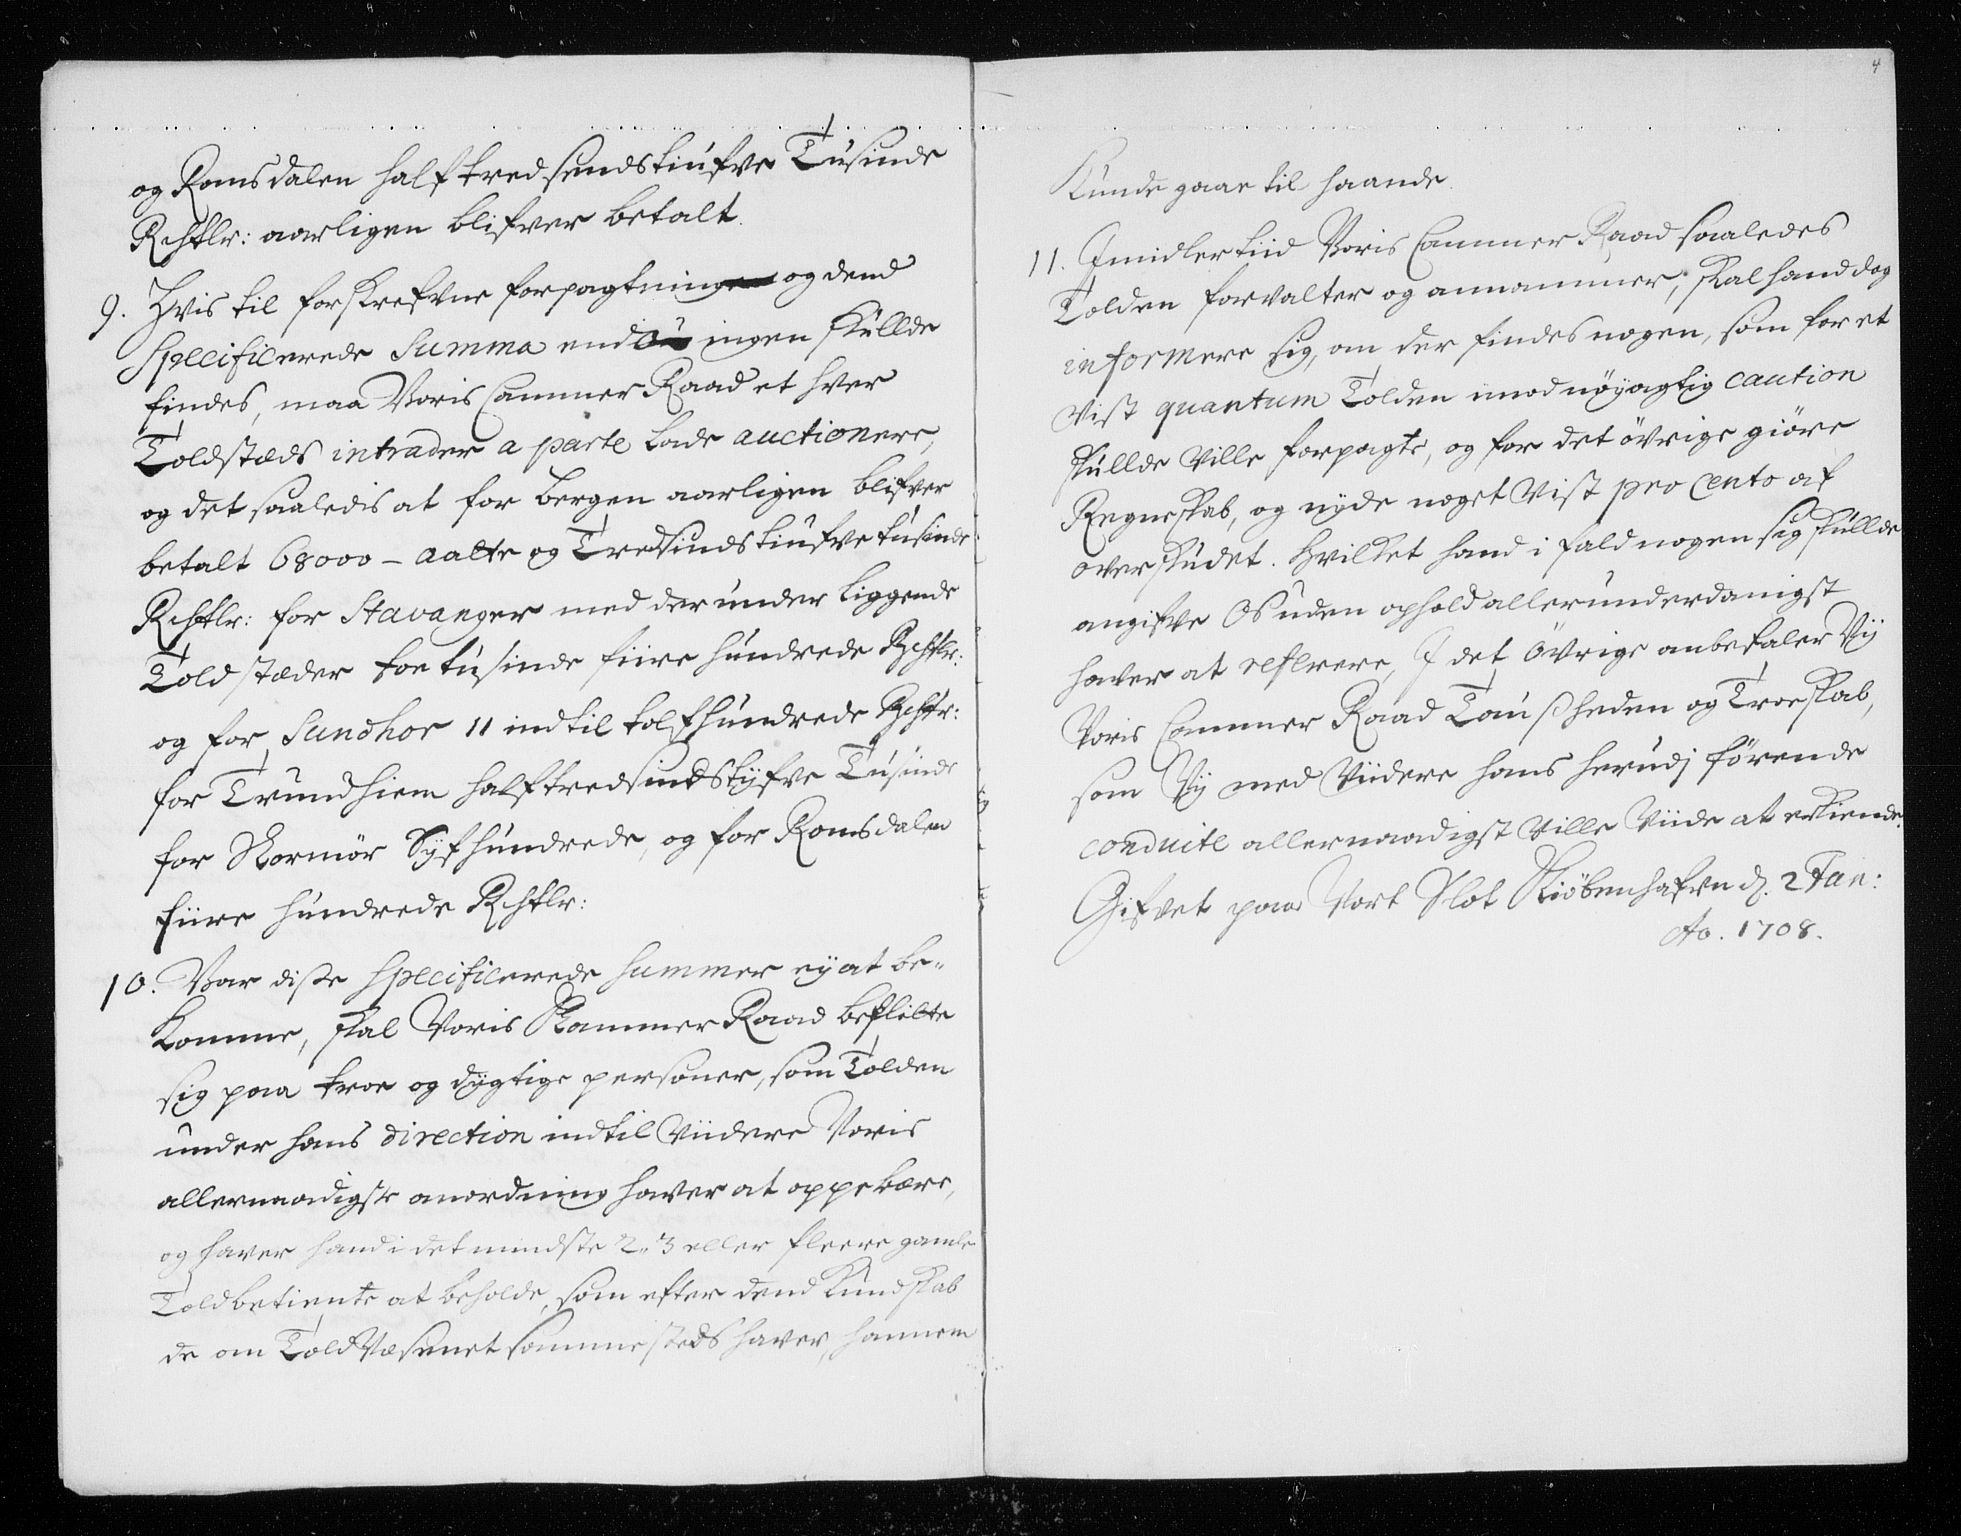 og Romsdalen halftredsendstiufve Tusinde
Rchdlr: aarligen blifver betalt.
9. Hvis til forskrefvne forpagtning og dend
Specificerede Summa endnu ingen skullde
findes, maa Voris Cammer Raad et hver
Toldstæds intrader a parte lade auctionere,
og det saaledis at for Bergen aarligen blifver
betalt 68000 – aatte og Tresindstiufve tusinde
Rchdlr: for Stavanger med derunder liggende
Toldstæder toe tusinde fiire hundrede Rchdlr:
og for Sundhor 11 indtil tolfhundrede Rchdlr:
for Trundhiem halftredsindstyfve Tusinde
for Normør Syfhundrede, og for Romsdalen
fiire hundrede Rchdlr:
10. Var disse specificerede summer ey at be-
komme, skal Voris Kammer Raad beflitte
sig paa troe og dygtige personer, som Tolden
under hans direction indtil Viidere Voris
allernaadigste anordning haver at oppebære,
og haver hand i det mindste 2 „ 3 eller fleere gamle
Toldbetiente at beholde, som efter dend Kundskab
de om Told Væsenet sammesteds haver, hannem
4
Kunde gaae til haande.
11. Imidlertiid Voris Cammer Raad saaledes
Tolden forvalter og annammer, skal hand dog
informere sig, om der findes nogen, som for et
vist quantum Tolden imod nøyagtig caution
skullde ville forpagte, og for det øvrige giøre
Regneskab, og nyde noget vist pro cento af
overskudet. Hvilket hand i fald nogen sig skullde
angifve Os uden ophold allerunderdanigst
haver at referere, I det øvrige anbefaler Vij
Voris Cammer Raad Taußheden og Troeskab,
som Vij med Viidere hans herudj førende
conduite allernaadigst ville Viide at erkiende.
Gifvet paa Vort Slot Kiøbenhafvn d. 2 Jan:
Ao. 1708.